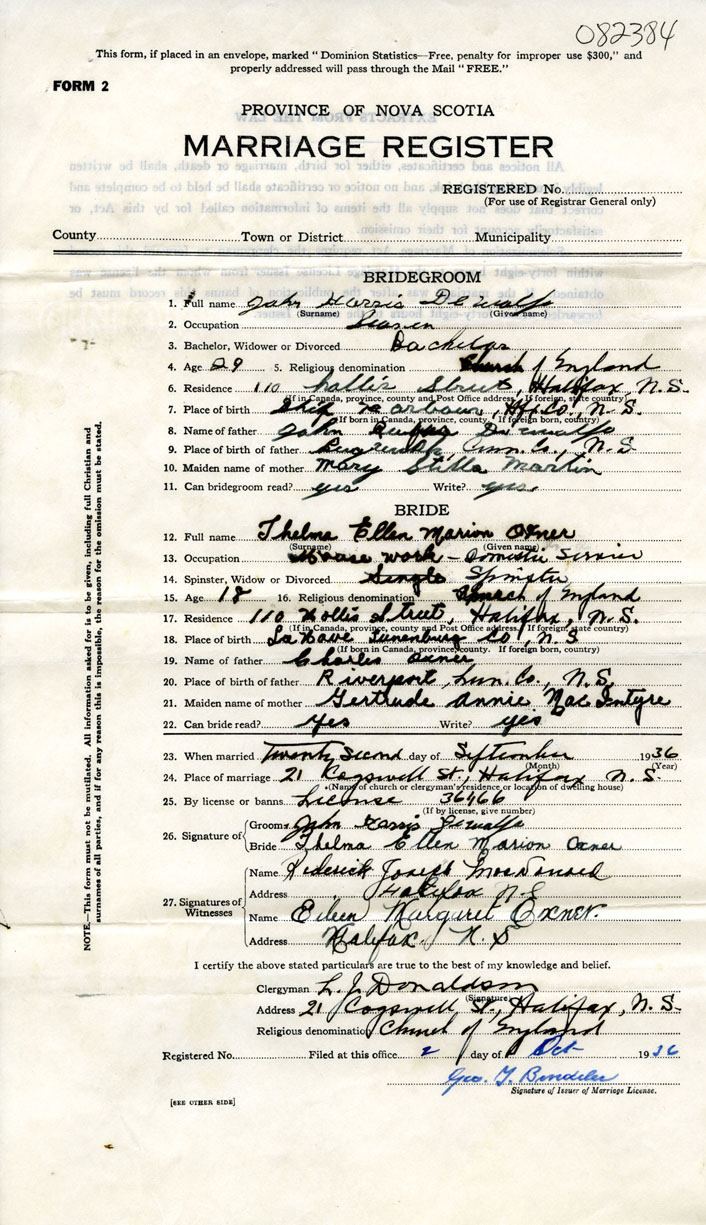 082384
This form, if placed in an envelope, marked "Dominion Statistics—Free, penalty for improper use $300," and
properly addressed will pass through the Mail "FREE."
FORM 2
PROVINCE OF NOVA SCOTIA
MARRIAGE REGISTER
REGISTERED No.
(For use of Registrar General only)
County Town or District Municipality
BRIDEGROOM
1. Full name John Harris Dewolfe
(Surname) (Given name)
2. Occupation
3. Bachelor, Widower or Divorced Bachelor
4. Age 29 5. Religious denomination Church of England
6. Residence 110 Hollis Street, Halifax, N.S.
(If in Canada, province, county and Post Office address. If foreign, state country)
7. Place of birth Ship Harbour, Hfx Co., N.S.
(If born in Canada, province, county. If foreign born, country)
8. Name of father John Dewolfe
9. Place of father Lun. Co., N.S
10. Maiden name of mother Mary Stella Martin
11. Can bridegroom read? yes Write? yes
BRIDE
12. Full name Thelma Ellen Marion Oxner
(Surname) (Given name)
13. Occupation House work — Domestic Service
14. Spinster, Widow or Divorced Single Spinster
15. Age 18 16. Religious denomination Church of England
17. Residence 110 Hollis Street, Halifax, N.S.
(If in Canada, province, county and Post Office address. If foreign state country)
18. Place of birth La Have Lunenburg Co, N.S
(If born in Canada, province, county. If foreign born, country)
19. Name of father Charles Oxner
20. Place of birth of father Riverport, Lun. Co., N.S.
21. Maiden name of mother Gertrude Annie MacIntyre
22. Can bride read? Yes Write? yes
23. When married Twenty Second day of September 1936
(Month) (Year)
24. Place of marriage 21 Cogswell St., Halifax N.S.
(Name of church or clergyman's residence or location of dwelling house)
25. By license or banns License 36166
(If by license, give number)
26. Signature of Groom John Harris Dewolfe
Bride Thelma Ellen Marion Oxner
27. Signatures of Witnesses
Name Roderick Joseph MacDonald
Address Halifax N.S
Name Eileen Margaret Oxner.
Address Halifax. N.S
I certify the above stated particulars are true to the best of my knowledge and belief.
Clergyman L. J. Donaldson
(Signature)
Address 21 Cogswell St., Halifax, N.S.
Religious denomination Church of England
Registered No. Filed at this office 2 day of Oct 1936
Geo. T.
Signature of Issuer of Marriage License.
[SEE OTHER SIDE]
NOTE.—This form must not be mutilated. All information asked for is to be given, including full Christian and
surnames of all parties, and if for any reason this is impossible, the reason for the omission must be stated.